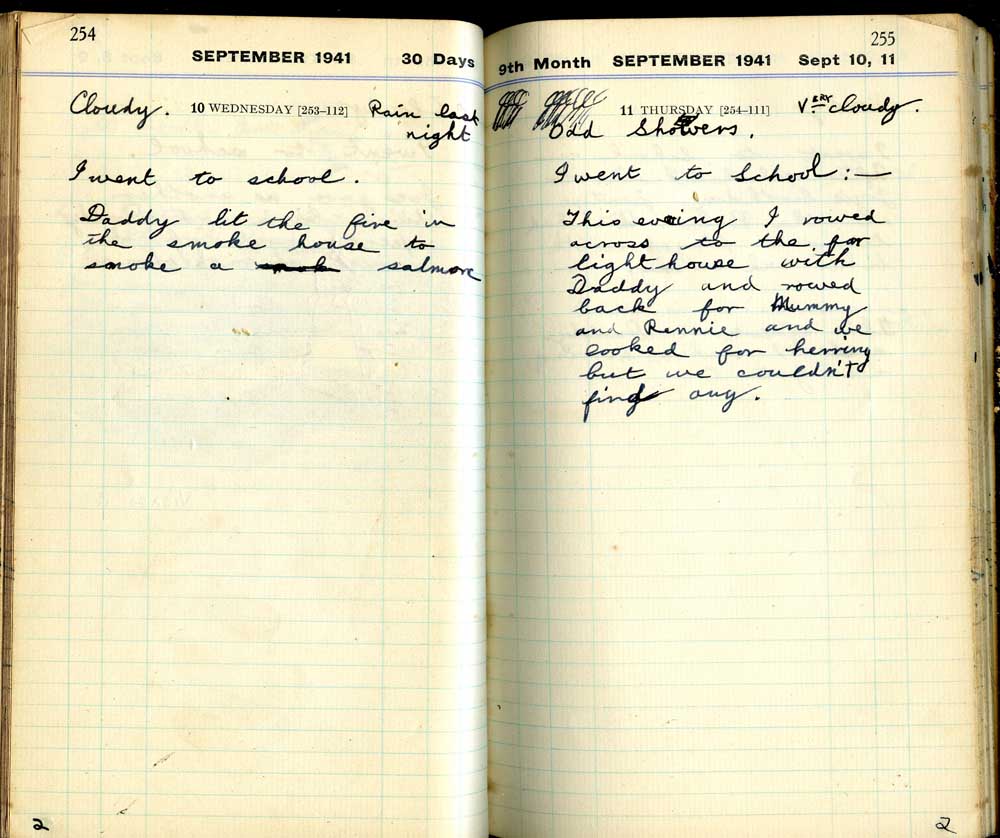 254
SEPTEMBER 1941 30 Days
Cloudy. 10 WEDNESDAY [253–112] Rain last
night
I went to school.
Daddy lit the fire in
the smoke house to
smoke a smok salmon
2
255
9th Month SEPTEMBER 1941 Sept 10, 11
11 THURSDAY [254–111] VERY cloudy.
Odd Showers.
I went to School:—
This evening I rowed
across to the far
light house with
Daddy and rowed
back for Mummy
and Rennie and we
looked for herring
but we couldn't
find any.
2